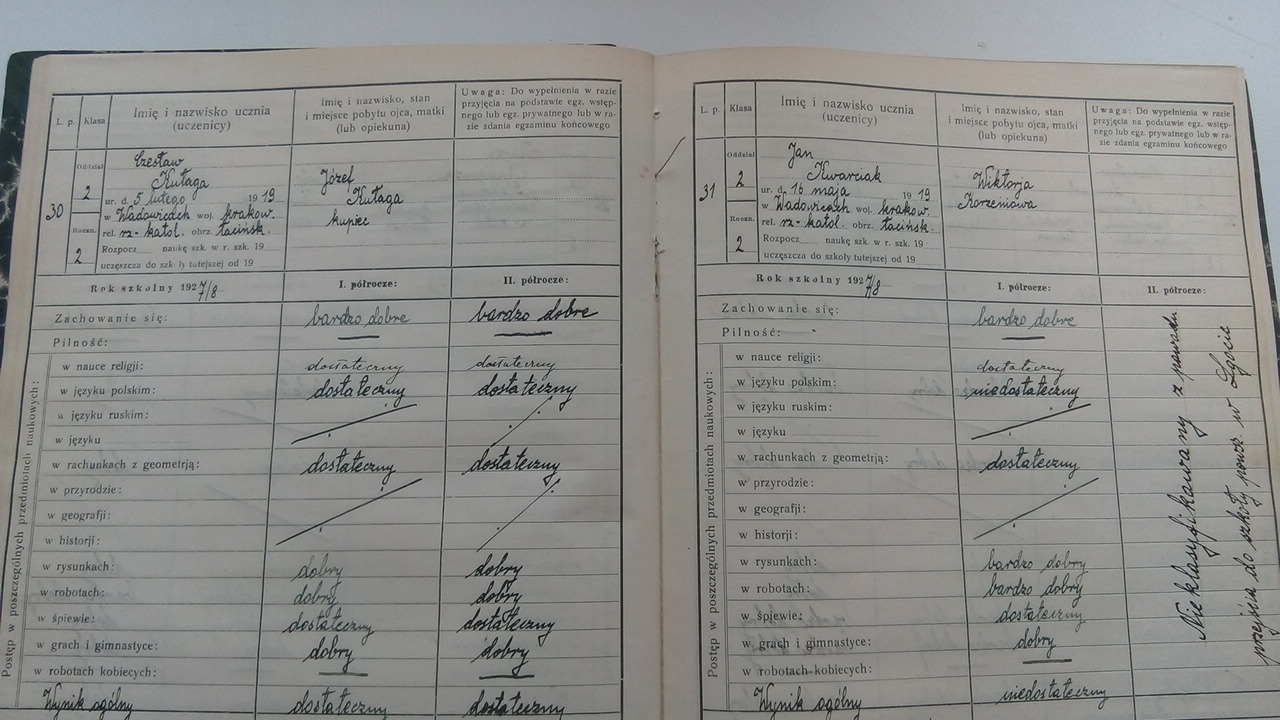 L. p.
Klasa
Imię i nazwisko ucznia
(uczenicy)
Imię i nazwisko, stan
i miejsce pobytu ojca, matki
(lub opiekuna)
Uwaga: Do wypełnienia w razie
przyjęcia na podstawie egz. wstęp-
nego lub egz. prywatnego lub w ra-
zie zdania egzaminu końcowego
30
Oddział
2
Roczn.
2
Czesław
Kułaga
ur. d. 5 lutego 1919
w Wadowicach woj. krakow.
rel. rz-katol. obrz. łacińsk.
Rozpocz. naukę szk. w r. szk. 19
uczęszcza do szkoły tutejszej od 19
Józef
Kułaga
kupiec
Rok szkolny 1927/8
I. półrocze:
II. półrocze:
Zachowanie się: bardzo dobre bardzo dobre
Pilność:
Postęp w poszczególnych przedmiotach naukowych:
w nauce religji: dostateczny dostateczny
w języku polskim: dostateczny dostateczny
w języku ruskim:
w języku
w rachunkach z geometrją: dostateczny dostateczny
w przyrodzie:
w geografji:
w historji:
w rysunkach: dobry dobry
w robotach: dobry dobry
w śpiewie: dostateczny dostateczny
w grach i gimnastyce: dobry dobry
w robotach kobiecych:
Wynik ogólny dostateczny dostateczny
L. p.
Klasa
Imię i nazwisko ucznia
(uczenicy)
Imię i nazwisko, stan
i miejsce pobytu ojca, matki
(lub opiekuna)
Uwaga: Do wypełnienia w razie
przyjęcia na podstawie egz. wstęp-
nego lub egz. prywatnego lub w ra-
zie zdania egzaminu końcowego
31
Oddział
2
Roczn.
2
Jan
Kwarciak
ur. d. 16 maja 1919
w Wadowicach woj. krakow.
rel. rz-katol. obrz. łacińsk.
Rozpocz. naukę szk. w r. szk. 19
uczęszcza do szkoły tutejszej od 19
Wiktorja
Korzeniowa
Rok szkolny 1927/8
I. półrocze:
II. półrocze:
Zachowanie się: bardzo dobre
Pilność:
Postęp w poszczególnych przedmiotach naukowych:
w nauce religji: dostateczny
w języku polskim: niedostateczny
w języku ruskim:
w języku
w rachunkach z geometrją: dostateczny
w przyrodzie:
w geografji:
w historji:
w rysunkach: bardzo dobry
w robotach: bardzo dobry
w śpiewie: dostateczny
w grach i gimnastyce: dobry
w robotach kobiecych:
Wynik ogólny niedostateczny
Nieklasyfikowany z powodu
przejścia do szkoły powsz. w Zgocie